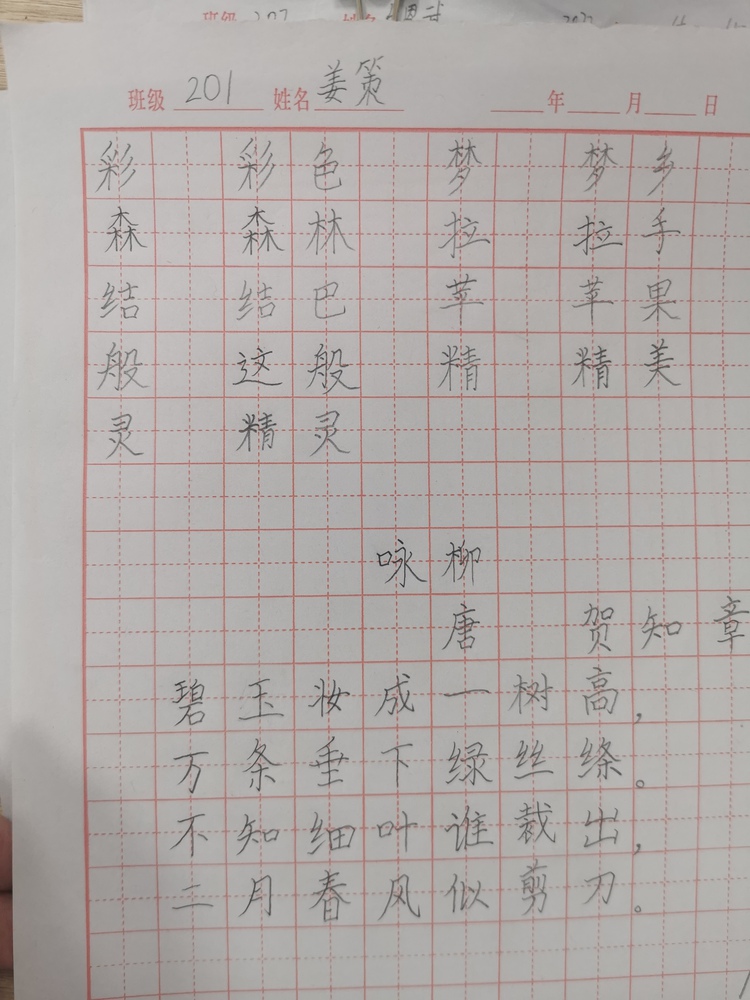 班级 207 姓名
班级 201 姓名 姜策 年 月 日
彩 彩色 梦 梦乡
森 森林 拉 拉手
结 结巴 苹 苹果
般 这般 精 精美
灵 精灵
咏柳
唐 贺知章
碧玉妆成一树高，
万条垂下绿丝绦。
不知细叶谁裁出，
二月春风似剪刀。